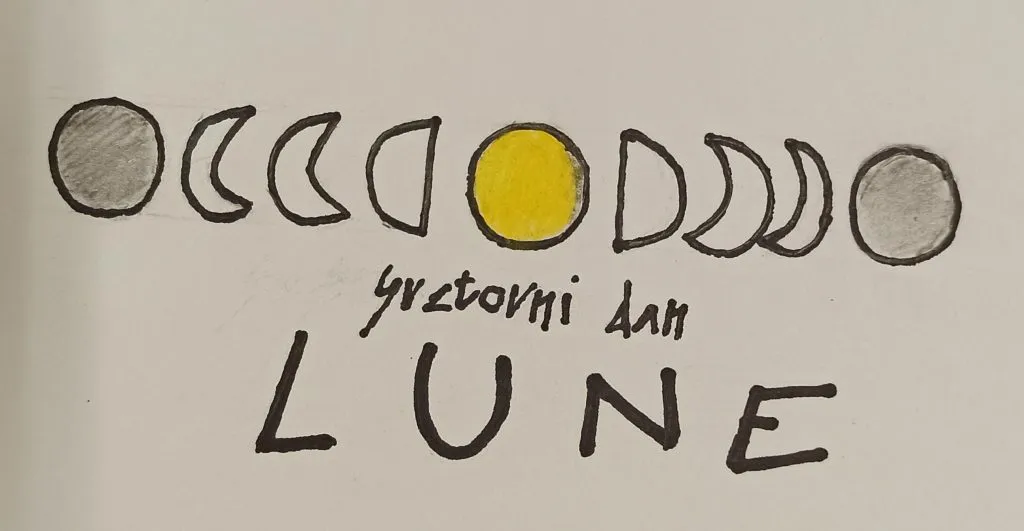 Svetovni dan
LUNE